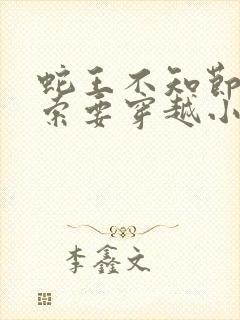 蛇王不知节
索要穿越小
李鑫文